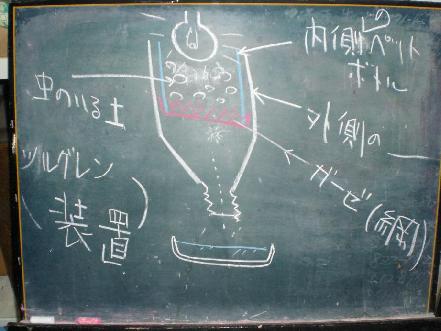 内側のペット
ボトル
虫のいる土
外側の
ツルグレン
(装置)
ガーゼ(網)